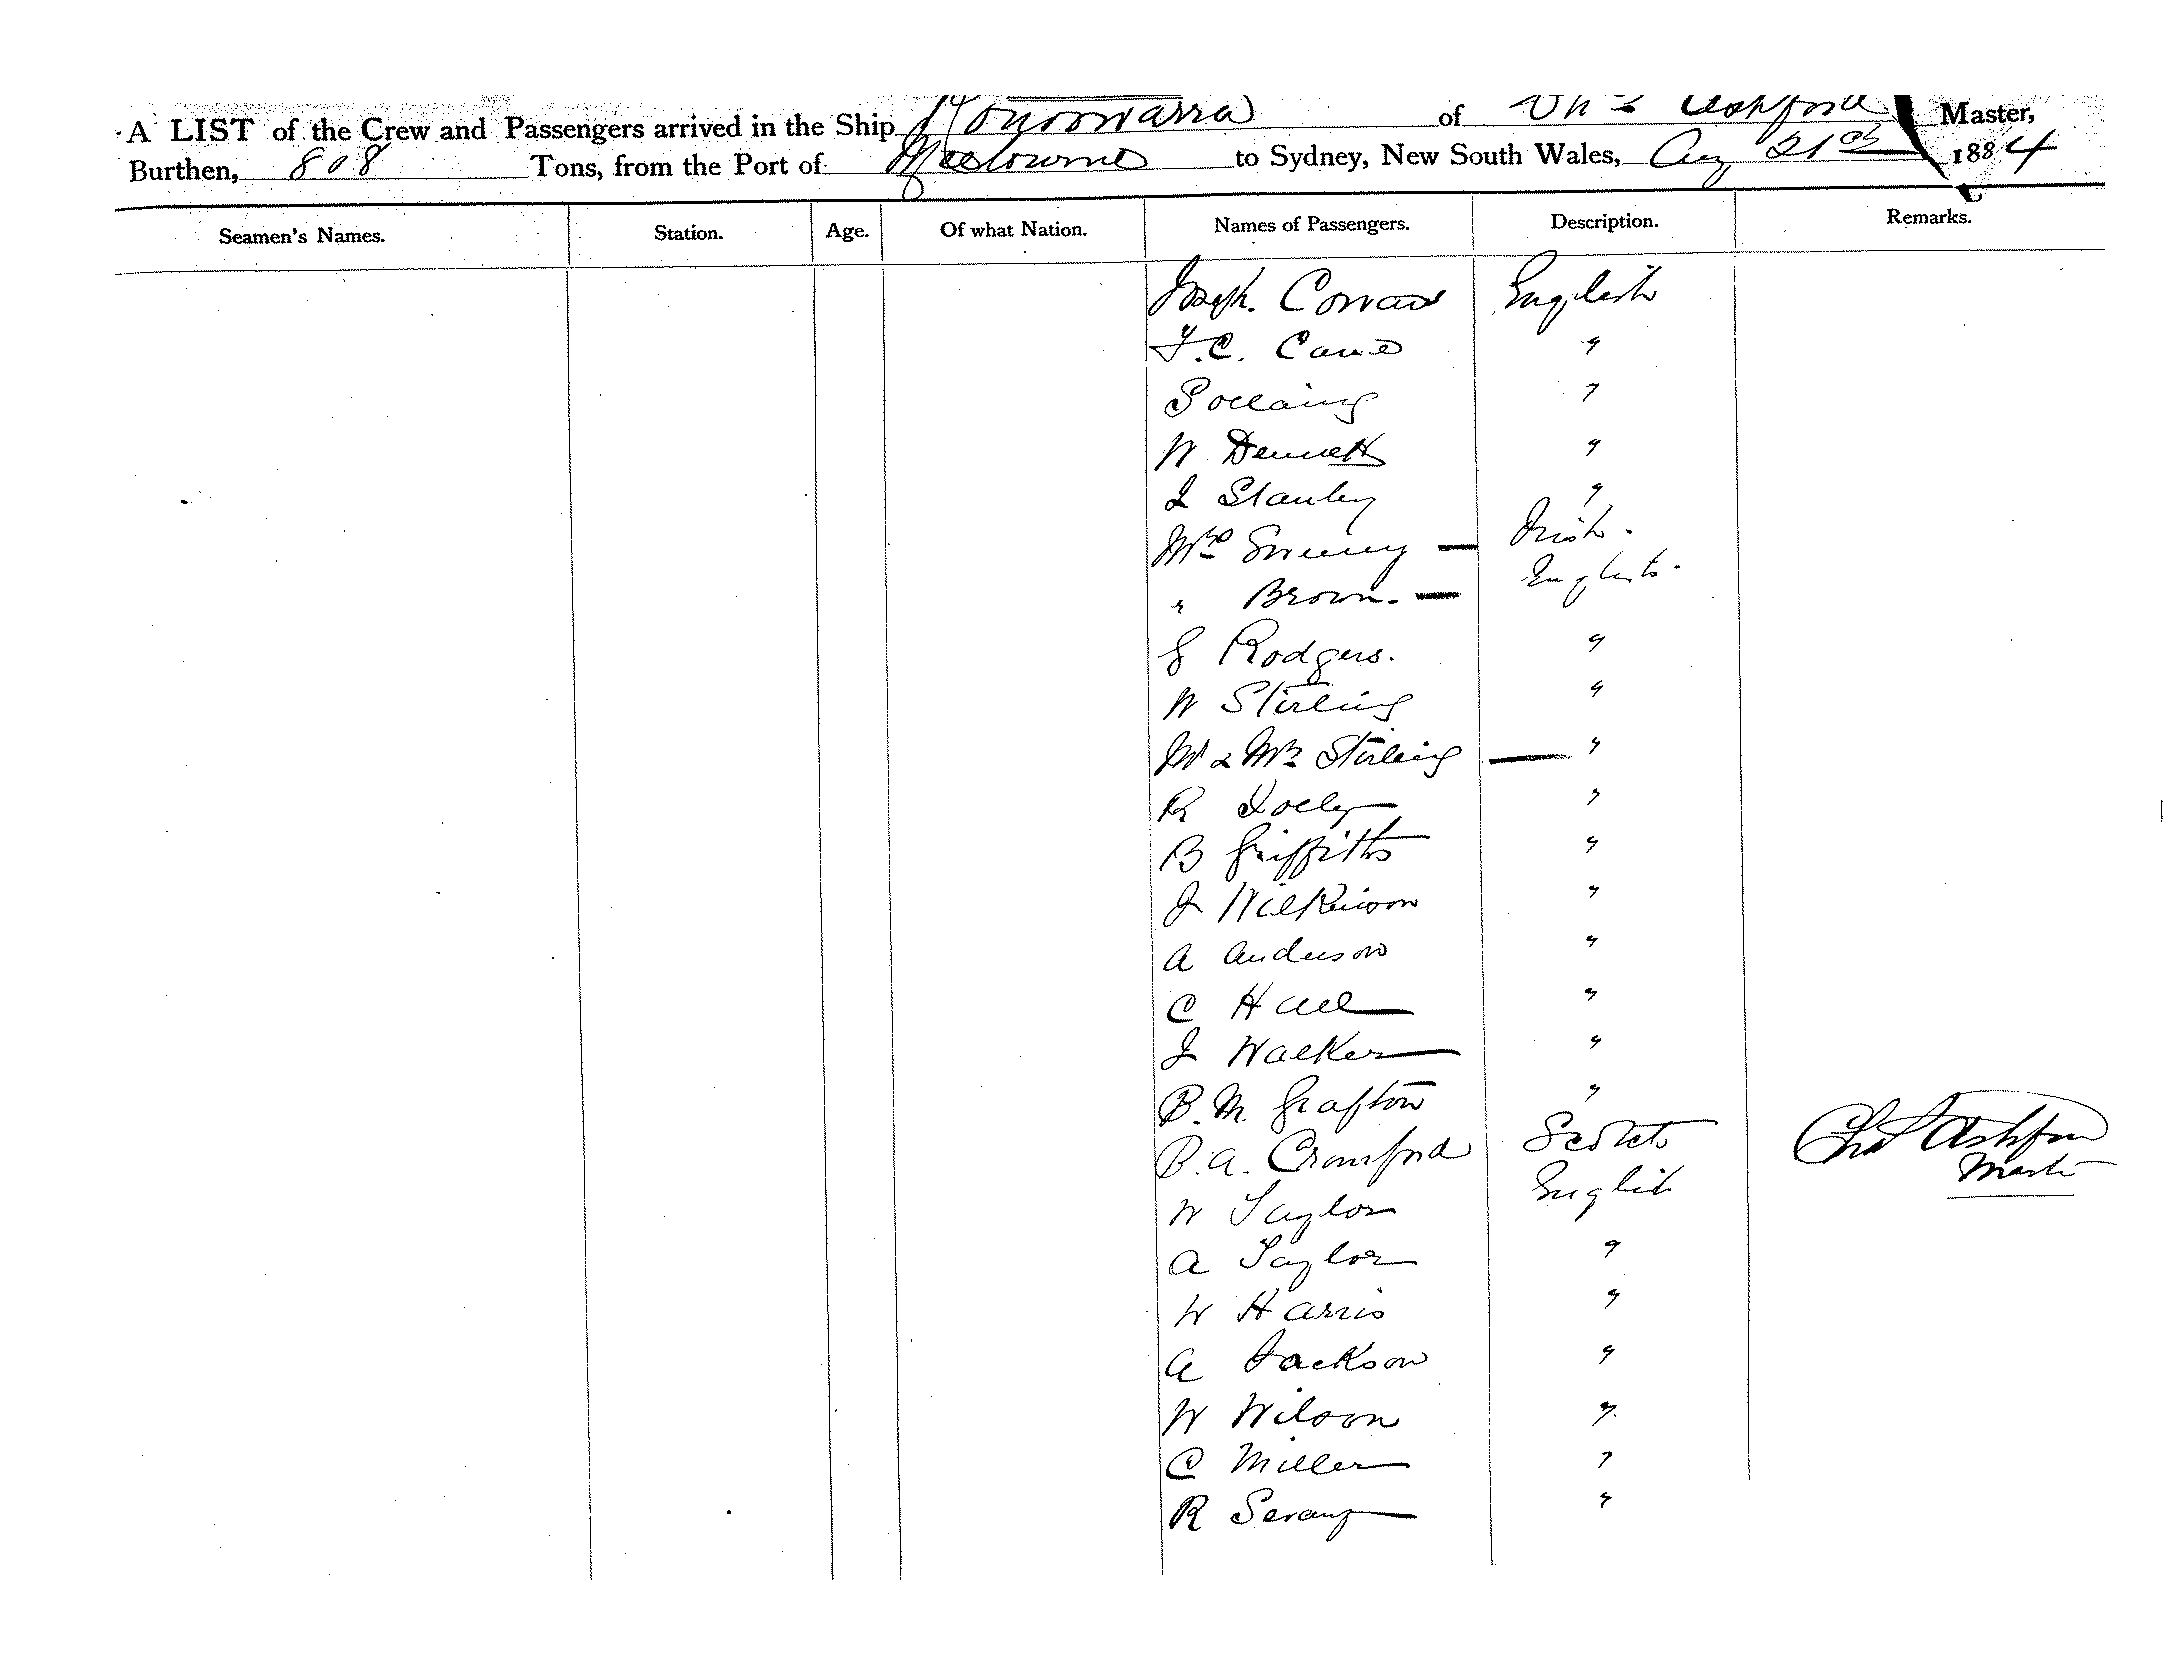 A LIST of the Crew and Passengers arrived in the Ship Konoowarra of Chas Ashford Master,
Burthen, 808 Tons, from the Port of Melbourne to Sydney, New South Wales, Aug 21st 1884
Seamen's Names. Station. Age. Of what Nation. Names of Passengers. Description. Remarks.
Joseph. Conrad English
F.C. Cane "
"
W Dennett "
J Stanley "
Mrs Sweeny — Irish.
" Brown. — English.
G Rodgers. "
W Stirling "
M & Mrs Stirling — "
R "
B Griffiths "
J Wilkinson "
A Anderson "
C Hall "
J Walker "
B.M. Grafton "
B.A. Crawford Scotch
W Taylor English
A Taylor "
W Harris "
A Jackson "
W Wilson "
C Miller "
R "
Chas Ashford
Master